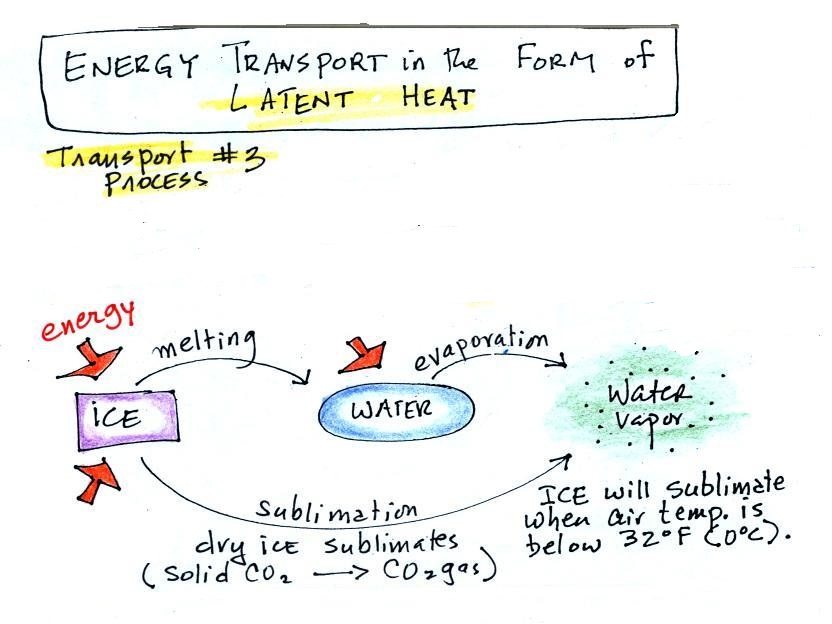 ENERGY TRANSPORT in the FORM of
LATENT HEAT
Transport #3
PROCESS
energy
melting
evaporation
iCE
WATER
Water
vapor
sublimation
dry ice sublimates
(Solid CO₂ → CO₂ gas)
ICE will sublimate
when air temp. is
below 32°F (0°C).